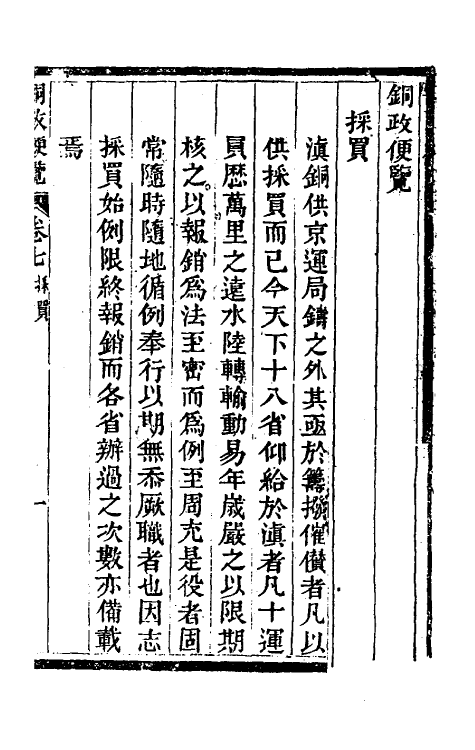 銅政便覽
採買
滇銅供京運局鑄之外其亟於籌撥催儹者凡以
供採買而已今天下十八省仰給於滇者凡十運
員歷萬里之遠水陸轉輸動易年歲嚴之以限期
核之以報銷爲法至密而爲例至周充是役者固
常隨時隨地循例奉行以期無忝厥職者也因志
採買始例限終報銷而各省辦過之次數亦備載
焉
銅政便覽 卷七 採買 一